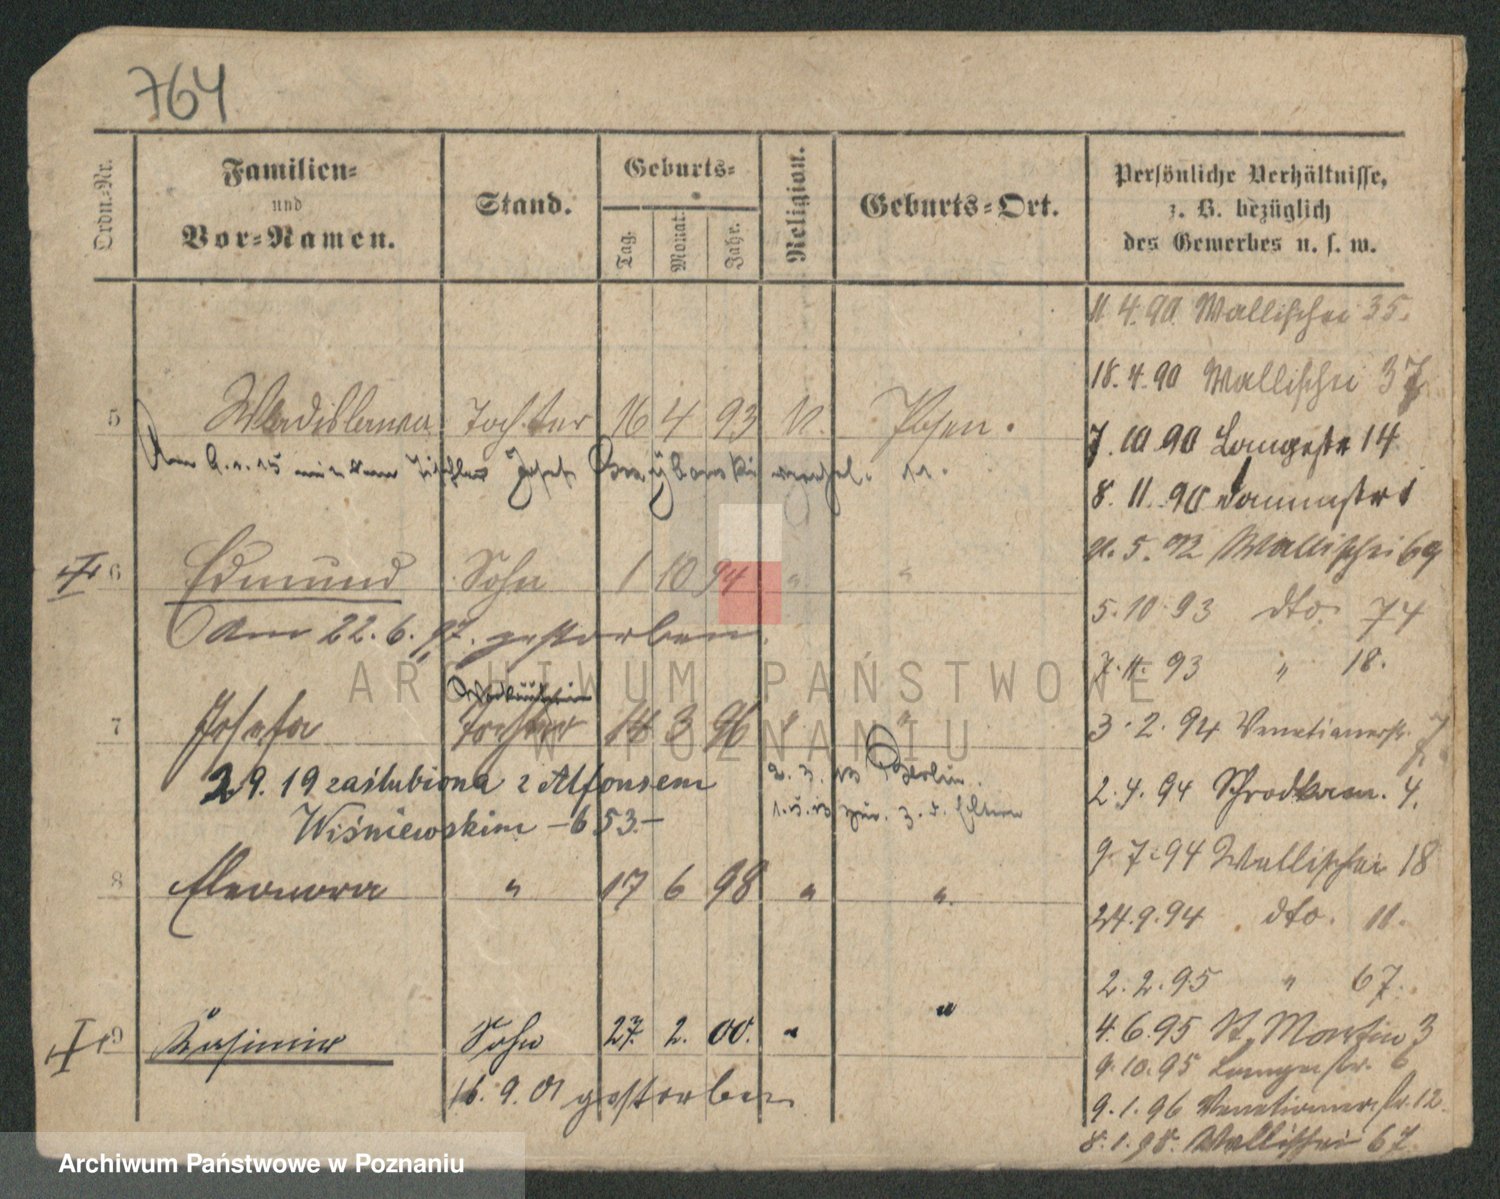 764
Ordn.-Nr.
Familien-
und
Vor-Namen.
Stand.
Geburts-
Tag.
Monat.
Jahr.
Religion.
Geburts-Ort.
Persönliche Verhältnisse,
z. B. bezüglich
des Gewerbes u. s. w.
11.4.90 Wallischei 35.
18.4.90 Wallischei 37
5 Wladislawa Tochter 16 4 93 Posen.
7.10.90 Langestr 14
Am mit dem Tischler Josef
8.11.90 Dammstr 1
5.92 Wallischei 69
6 Edmund Sohn 1 10 94 " "
5.10.93 dto. 74
Am 22.6.97. gestorben.
7.11.93 " 18.
7 Josefa Tochter 18 3 96 " "
3.2.94 Venetianerstr. 7
29.19 zaślubiona z Alfonsem
2.3.13 Berlin.
2.4.94 Schrodkam. 4.
Wiśniewskim - 653.-
1.5.13 zur. z. d. Eltern
9.7.94 Wallischei 18
8 Eleonora " 17 6 98 " "
24.9.94 dto. 11.
2.2.95 " 67.
9 Kasimir Sohn 27. 2. 00. " "
4.6.95 St. Martin 3
9.10.95 Langestr. 6
16.9.01 gestorben
9.1.96 Venetianerstr. 12
8.1.98. Wallischei 67
ARCHIWUM PAŃSTWOWE
W POZNANIU
Archiwum Państwowe w Poznaniu